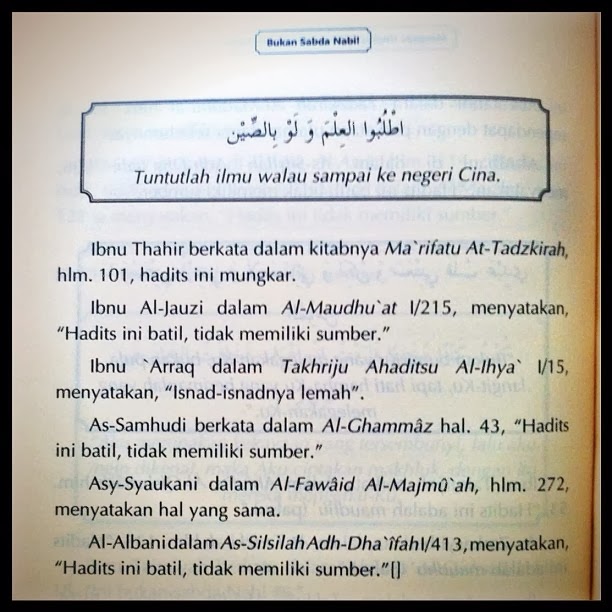 Bukan Sabda Nabi!
اطْلُبُوا العِلْمَ وَ لَوْ بِالصِّيْنِ
Tuntutlah ilmu walau sampai ke negeri Cina.
Ibnu Thahir berkata dalam kitabnya Ma`rifatu At-Tadzkirah,
hlm. 101, hadits ini mungkar.
Ibnu Al-Jauzi dalam Al-Maudhu`at I/215, menyatakan,
“Hadits ini batil, tidak memiliki sumber.”
Ibnu Arraq dalam Takhriju Ahaditsu Al-Ihya` I/15,
menyatakan, “Isnad-isnadnya lemah”.
As-Samhudi berkata dalam Al-Ghammâz hal. 43, “Hadits
ini batil, tidak memiliki sumber.”
Asy-Syaukani dalam Al-Fawâid Al-Majmû`ah, hlm. 272,
menyatakan hal yang sama.
Al-Albani dalam As-Silsilah Adh-Dha`îfah I/413, menyatakan,
“Hadits ini batil, tidak memiliki sumber.”[]